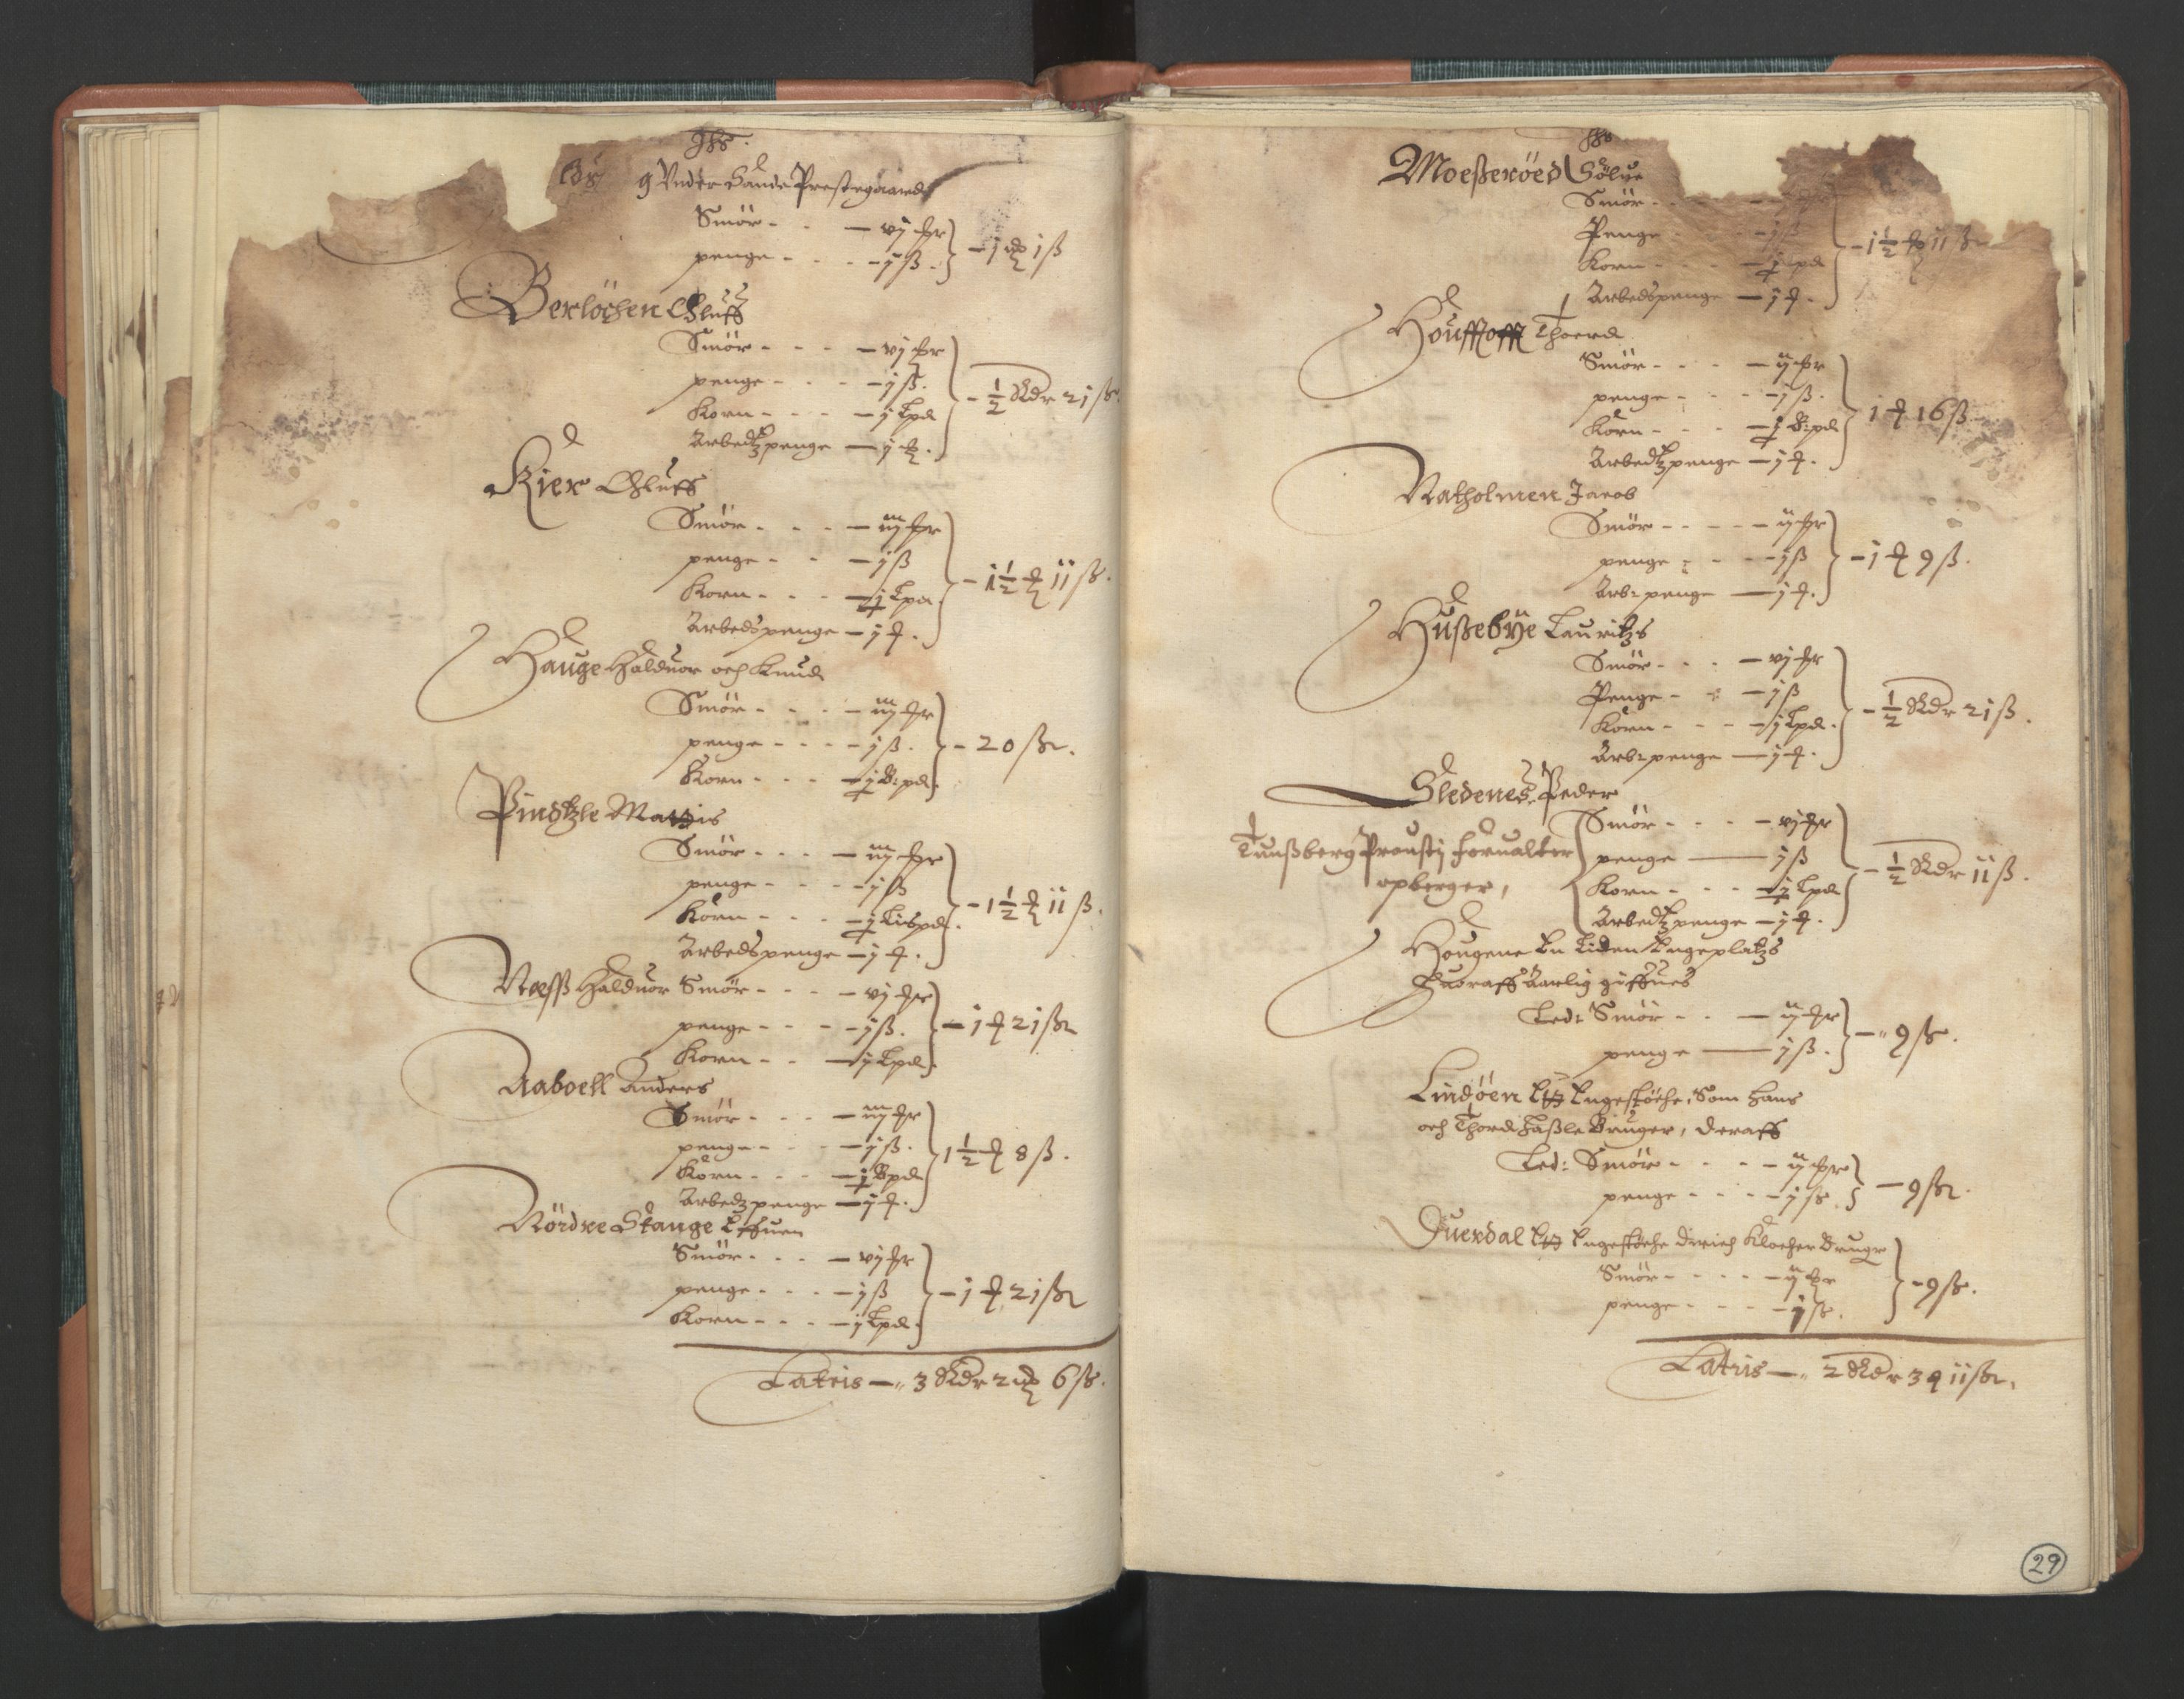 Ihs.
g Vnder Sande Prestegaard
Smör - - - vj fr
penge - - - - jß. } - j ₰ 1ß
Berlöchen Oluff
Smör - - - - vj fr
penge - - - - jß.
Korn - - - - j Lpd
Arbedtzpenge - j ₰. } - ½ Rdr 21ß.
Kier Oluff
Smör - - - - iij fr
penge - - - jß
Korn - - - - j Lpd.
Arbedspenge - j ₰. } - 1½ ₰ 11ß.
Hauge Halduor och Knud
Smör - - - - iij fr
penge - - - - jß.
Korn - - - - j B: pd. } - 20 ß.
Pindtzle Mattis
Smör - - - - iij fr
penge - - - - jß
Korn - - - - j Lispd.
Arbedspenge - j ₰. } - 1½ ₰ 11ß.
Næss Halduor Smör - - - - vj fr
penge - - - - jß.
Korn - - - j Lpd. } - 1 ₰ 21ß
Aaboell Anders
Smör - - - - iij fr
penge - - - - jß.
Korn - - - - j Bpd
Arbedzpenge - j ₰. } 1½ ₰ 8ß.
Nördre Stange Effuen
Smör - - - - vj fr
penge - - - - jß
Korn - - - - j Lpd. } - 1 ₰ 21ß
Latris - 3 Rdr 2 ₰ 6ß.
Ihs
Moesseröed Sölue
Smör - -
Penge - jß
Korn - - - j pd
Arbedspenge - j ₰. } - 1½ ₰ 11ß
Houffoff Thoerd
Smör - - - - ij fr
penge - - - jß.
Korn - - - - j B: pd
Arbedtzpenge - j ₰. } 1 ₰ 16ß
Natholmen Jacob
Smör - - - - ij fr
penge - - - - jß
Arb: penge - j ₰. } - 1 ₰ 9ß.
Hussebÿe Lauritzs
Smör - - - - vj fr
Penge - - - jß
Korn - - - - j Lpd.
Arb: penge - j ₰. } - ½ Rdr 21ß.
Sledenes Peder
Tunssberg Prousti foruallter
opberger,
Smör - - - - vj fr
penge - jß
Korn - - - - j Lpd
Arbedtzpenge - j ₰. } - ½ Rdr 11ß.
Hougene En Liden Engeplatzs
Huoraff Aarlig giffues
Led: Smör - - - ij fr
penge - jß. } - 9ß.
Lindöen Et Engestöche, Som Hans
och Thord Hassle Bruger, deraff
Led: Smör - - - - ij fr
penge - - - - jß. } - 9ß.
Duerdal Et Engestöche Dirich Klocher Brugr
Smör - - - - ij fr
penge - - - - jß. } - 9ß.
Latris - 2 Rdr 3 ₰ 11ß.
29